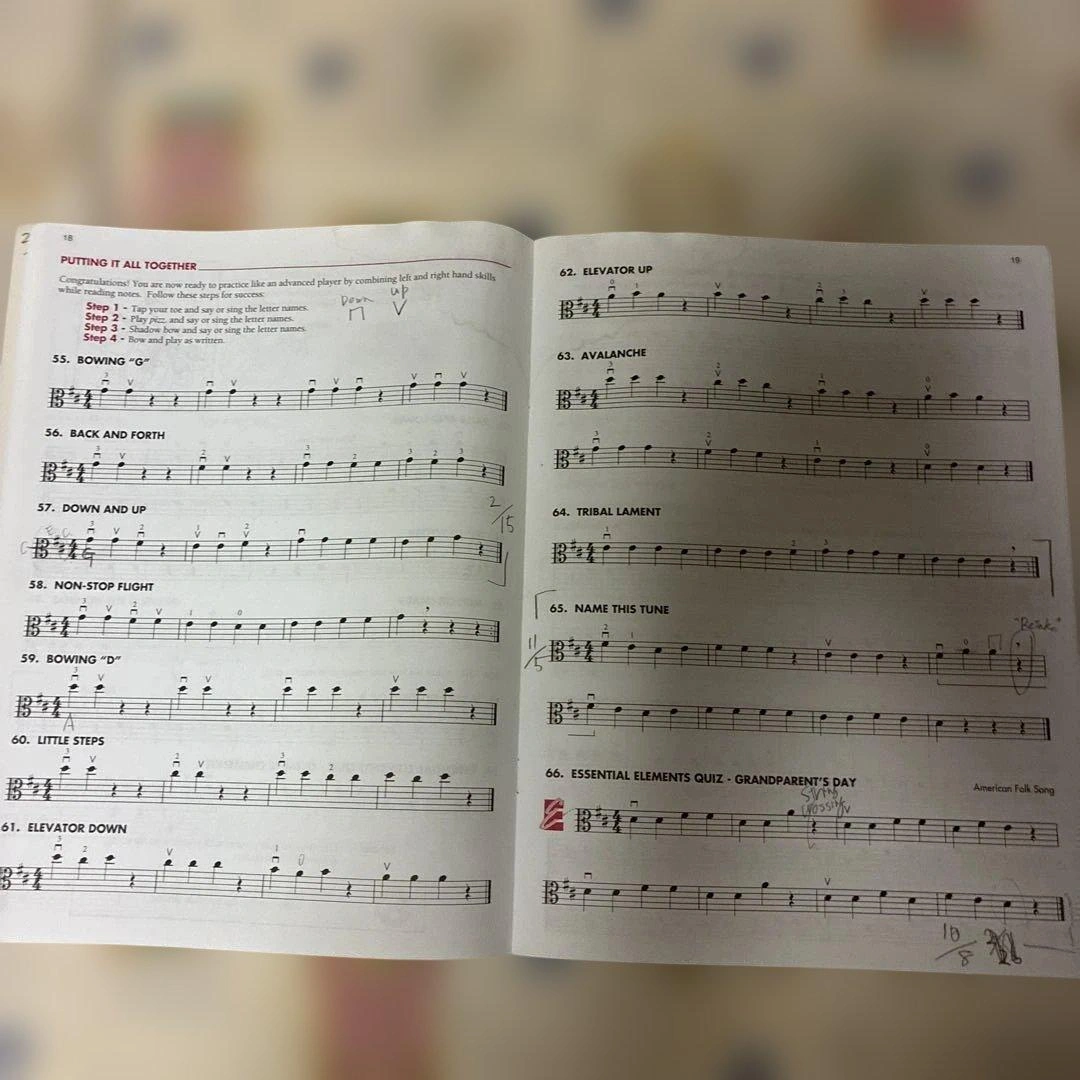 2
18
PUTTING IT ALL TOGETHER
Congratulations! You are now ready to practice like an advanced player by combining left and right hand skills
while reading notes. Follow these steps for success:
Step 1 - Tap your toe and say or sing the letter names.
Step 2 - Play pizz. and say or sing the letter names.
Step 3 - Shadow bow and say or sing the letter names.
Step 4 - Bow and play as written.
Down up
55. BOWING "G"
3
56. BACK AND FORTH
3 2 3 2 3 2 3
57. DOWN AND UP
2/15
3 2 1 2
G
58. NON-STOP FLIGHT
3 2 1 0
59. BOWING "D"
3
A
60. LITTLE STEPS
3 2 3 2
61. ELEVATOR DOWN
3 2 1 0
19
62. ELEVATOR UP
0 1 2 3
63. AVALANCHE
3 2 1 0
3 2 1 0
64. TRIBAL LAMENT
1 2 3
65. NAME THIS TUNE
11/5
2 1 0
66. ESSENTIAL ELEMENTS QUIZ - GRANDPARENT'S DAY
American Folk Song
String
crossing
E
10/8